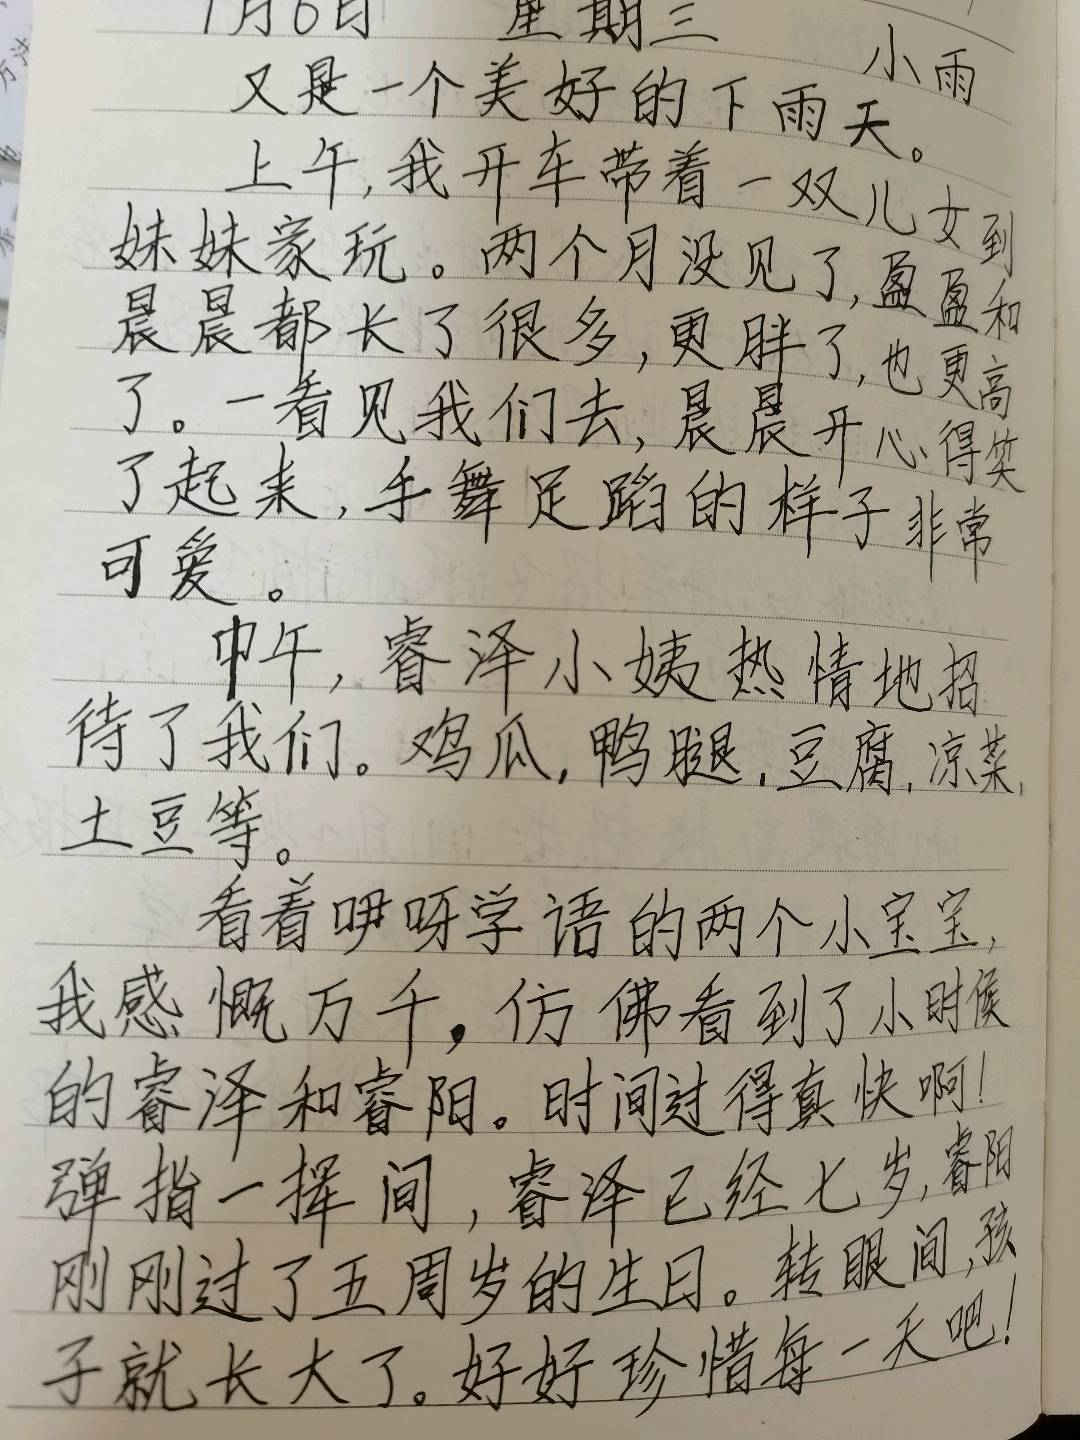 1月6日 星期三 小雨
又是一个美好的下雨天。
上午,我开车带着一双儿女到
妹妹家玩。两个月没见了,盈盈和
晨晨都长了很多,更胖了,也更高
了。一看见我们去,晨晨开心得笑
了起来,手舞足蹈的样子非常
可爱。
中午,睿泽小姨热情地招
待了我们。鸡瓜,鸭腿,豆腐,凉菜,
土豆等。
看着咿呀学语的两个小宝宝,
我感慨万千,仿佛看到了小时候
的睿泽和睿阳。时间过得真快啊!
弹指一挥间,睿泽已经七岁,睿阳
刚刚过了五周岁的生日。转眼间,孩
子就长大了。好好珍惜每一天吧!